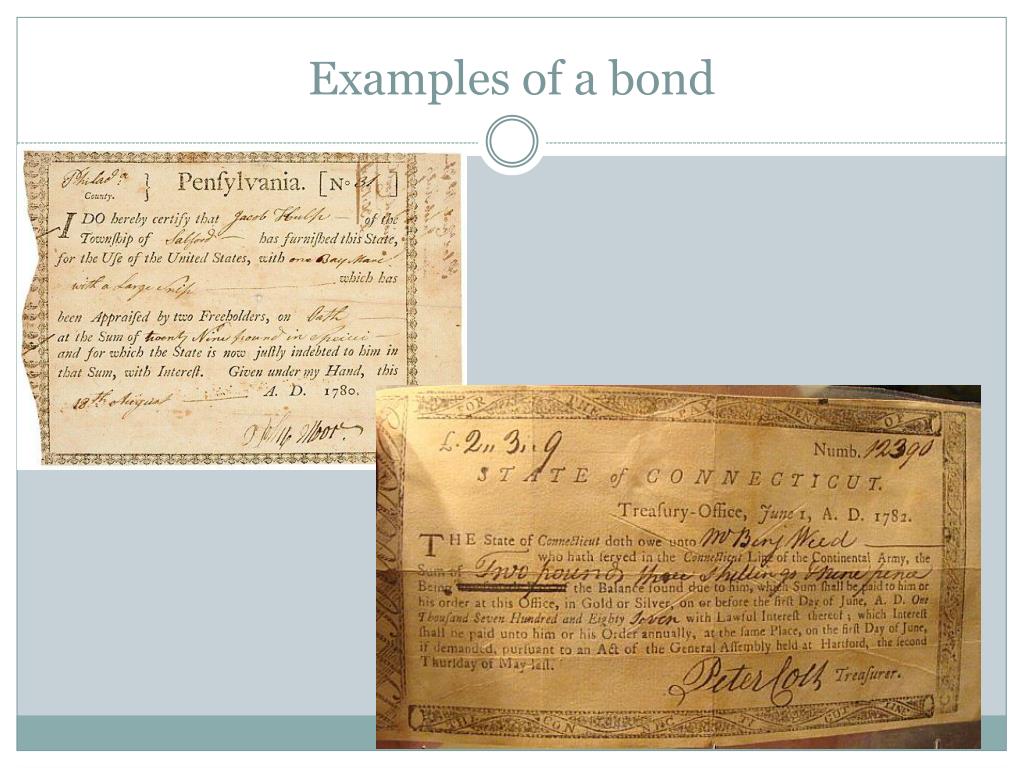 Examples of a bond
Philada.
County.
} Penſylvania. [No 31]
I DO hereby certify that Jacob Hulſe of the
Townſhip of Salford has furniſhed this State,
for the Uſe of the United States, with one Bay Mare
with a Large Snip which has
been Appraiſed by two Freeholders, on Oath
at the Sum of twenty Nine pound in Specie
and for which the State is now juſtly indebted to him in
that Sum, with Intereſt. Given under my Hand, this
18th August A. D. 1780.
FOR THE PAY OF
£ 2 ,, 3 ,, 9 Numb. 12390
STATE of CONNECTICUT.
Treaſury-Office, June 1, A. D. 1782.
THE State of Connecticut doth owe unto Mr Benj Weed
who hath ſerved in the Connecticut Line of the Continental Army, the
Sum of Two pounds three Shillings & nine pence
Being the Balance found due to him, which Sum ſhall be paid to him or
his order at this Office, in Gold or Silver, on or before the firſt Day of June, A. D. One
Thouſand Seven Hundred and Eighty Seven with Lawful Intereſt thereof ; which Intereſt
ſhall be paid unto him or his Order annually, at the ſame Place, on the firſt Day of June,
if demanded, purſuant to an Act of the General Aſſembly held at Hartford, the ſecond
Thurſday of May laſt.
Peter Colt Treaſurer.
THE CON LINE